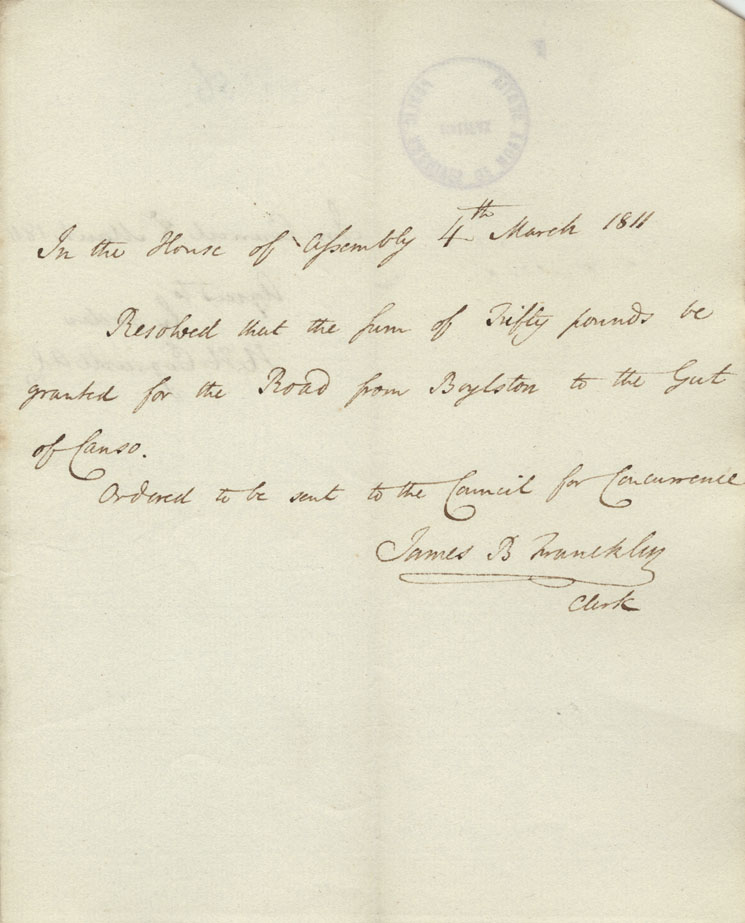 In the House of Assembly 4th March 1811
Resolved that the sum of Fifty pounds be
granted for the Road from Boylston to the Gut
of Canso.
Ordered to be sent to the Council for Concurrence
James B Franckley
Clerk